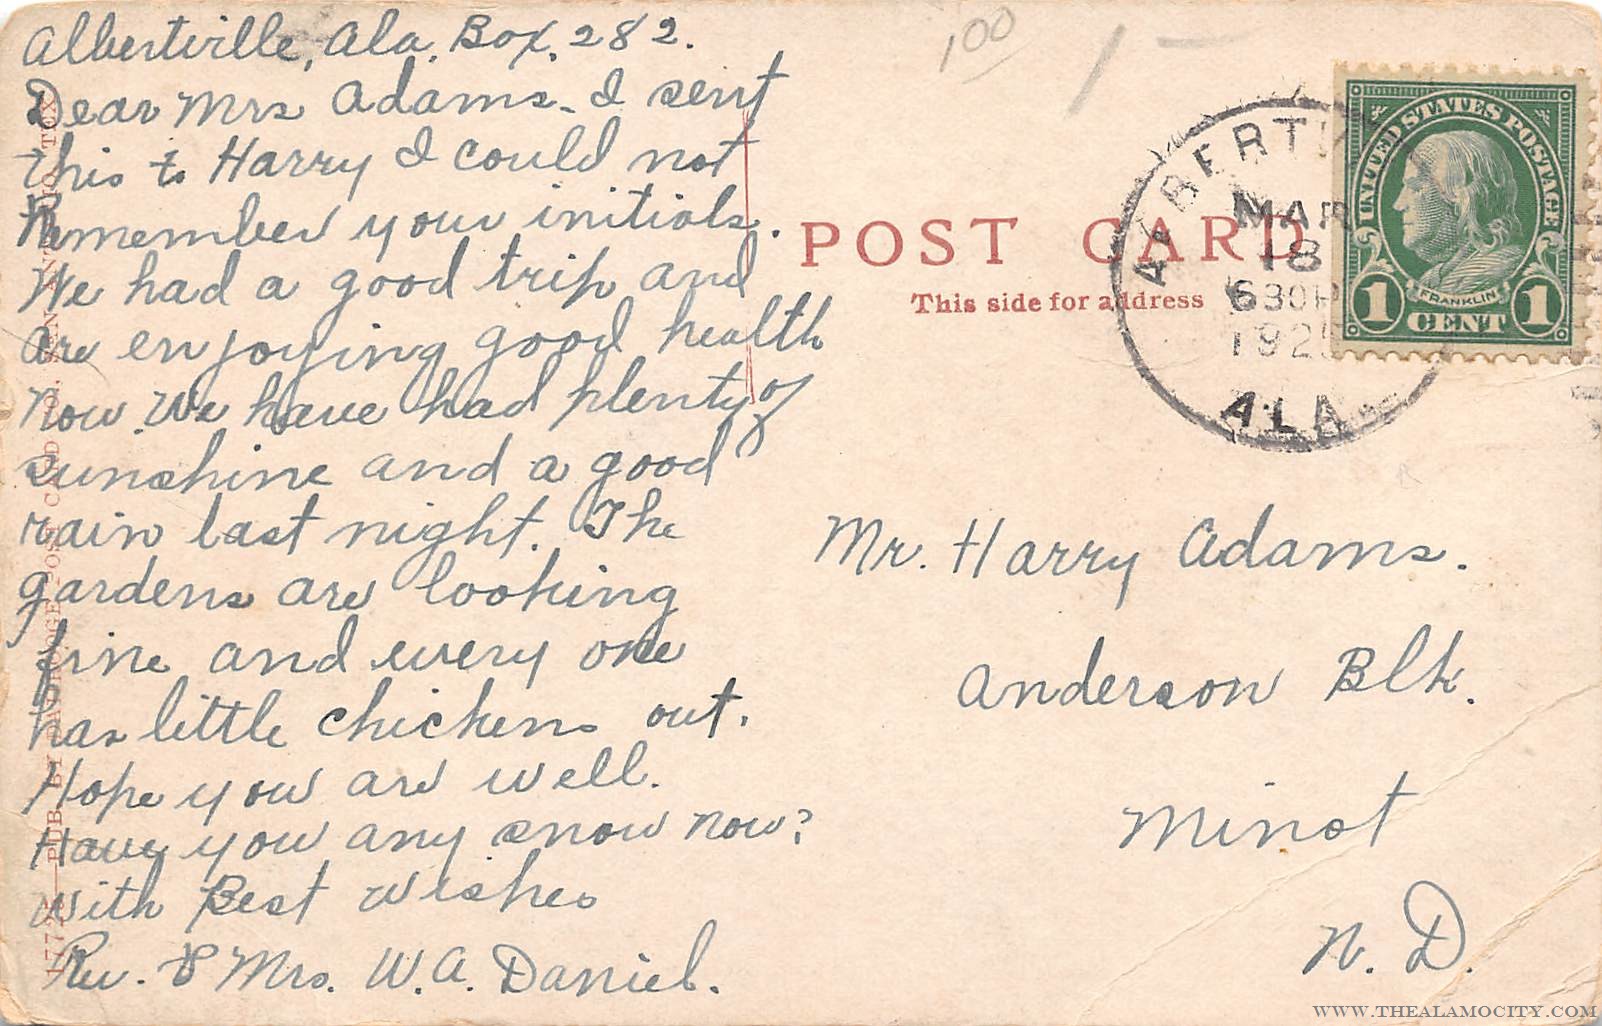 Albertville, Ala. Box. 282.
Dear Mrs Adams - I sent
this to Harry I could not
Remember your initials.
We had a good trip and
are enjoying good health
now. We have had plenty of
sunshine and a good
rain last night. The
gardens are looking
fine and every one
has little chickens out.
Hope you are well.
Have you any snow now?
With Best Wishes
Rev. & Mrs. W.A. Daniel.
17725—PUB. BY
POST CARD
100
1 —
POST CARD
This side for address
ALBERTV
MAR
18
630P
192
ALA
UNITED STATES POSTAGE
FRANKLIN
1 CENT 1
Mr. Harry Adams.
Anderson Blk.
Minot
N. D.
WWW.THEALAMOCITY.COM